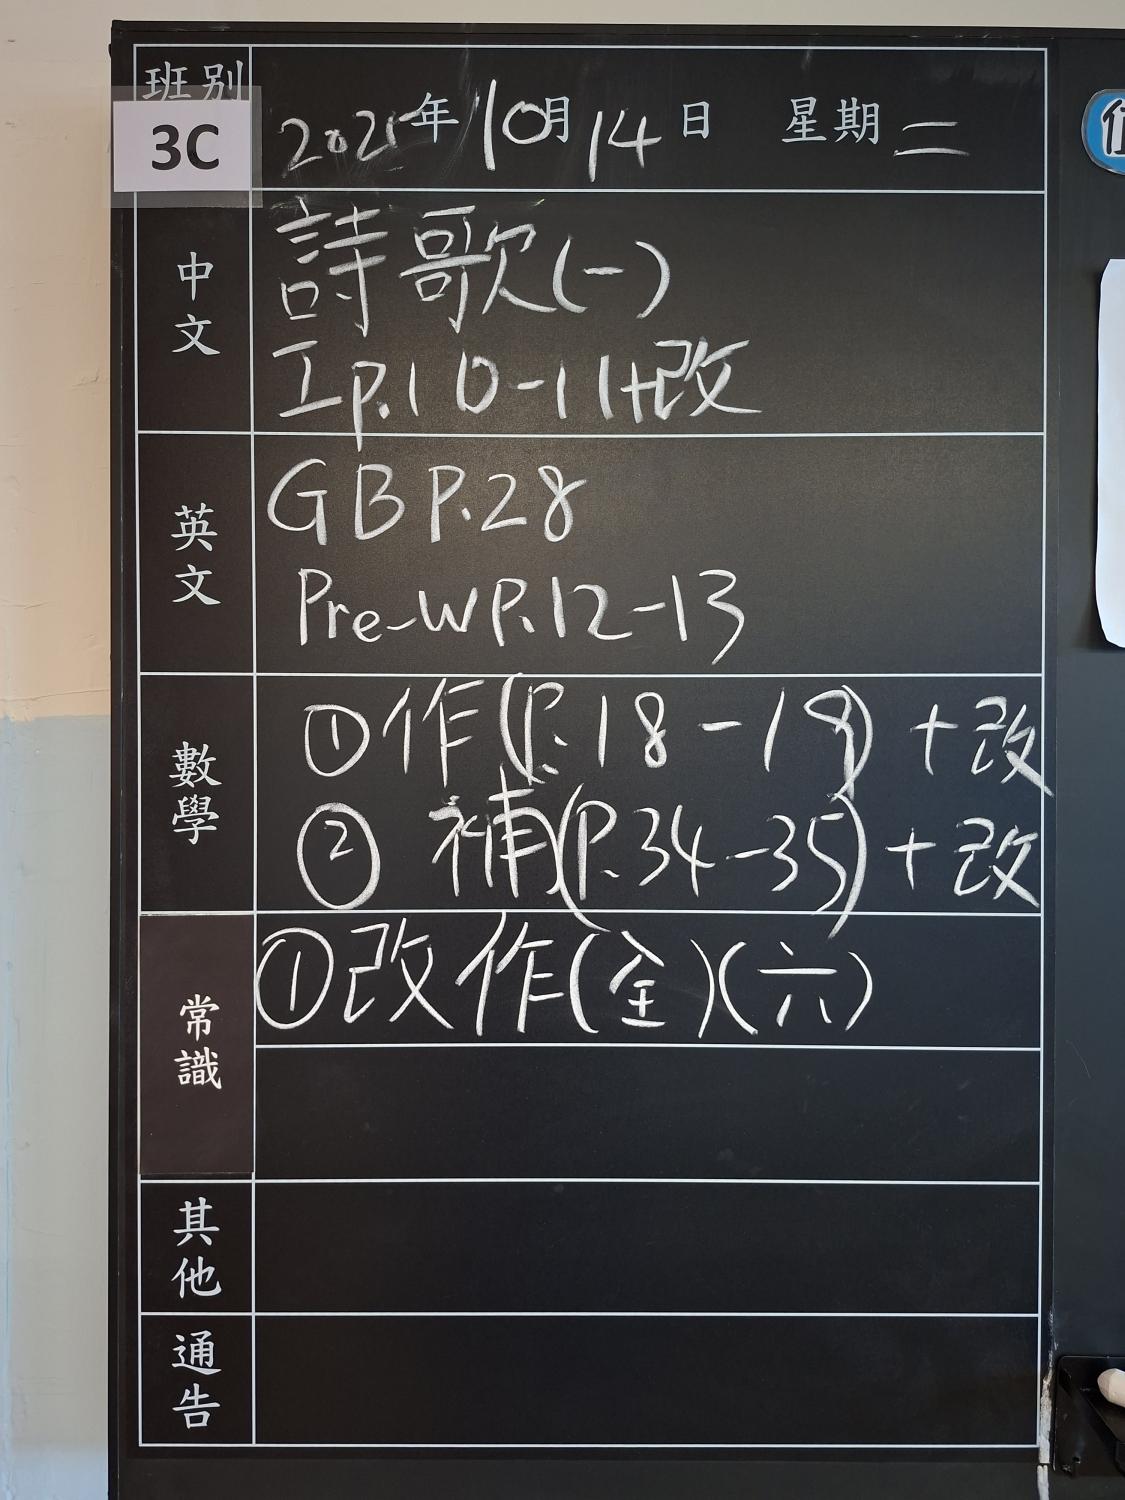 班別
3C
2025年10月14日 星期二
中文
詩歌(一)
工P.10-11+改
英文
GB P.28
Pre-W P.12-13
數學
①作(P.18-19)+改
②補(P.34-35)+改
常識
①改作(全)(六)
其他
通告